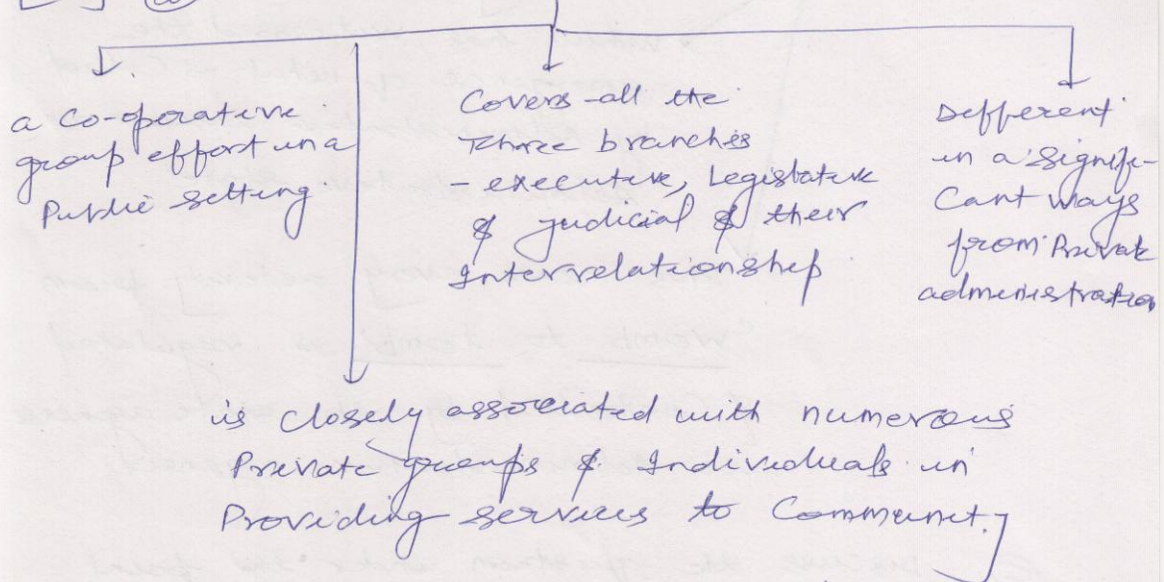 a Co-operative
group effort in a
Public setting
Covers all the
three branches
- executive, Legislative
& judicial & their
Interrelationship
Defferent
in a signifi-
cant ways
from Private
administration
is closely associated with numerous
Private groups & Individuals in
Providing services to Community